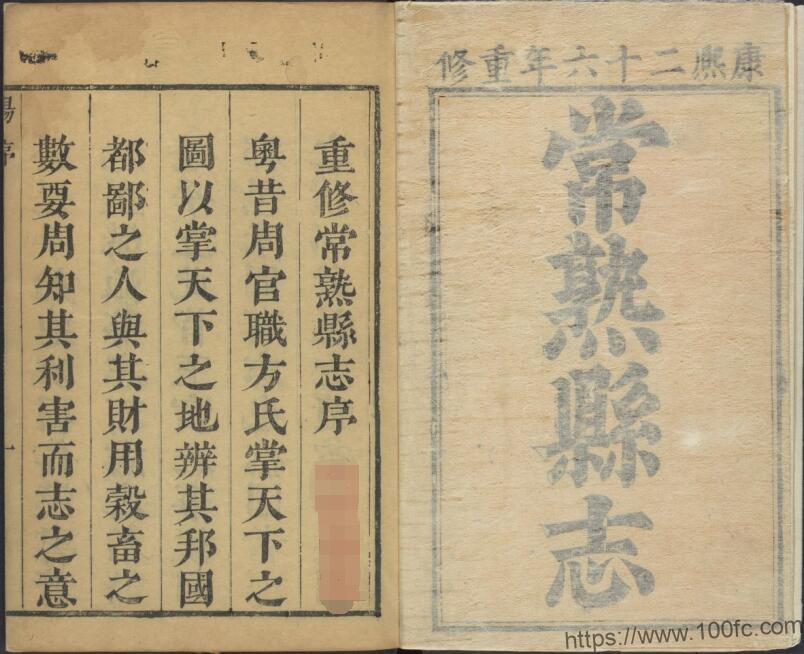 康熙二十六年重修
常熟縣志
重修常熟縣志序
粵昔周官職方氏掌天下之
圖以掌天下之地辨其邦國
都鄙之人與其財用穀畜之
數要周知其利害而志之意
序
一
https://www.100fc.com